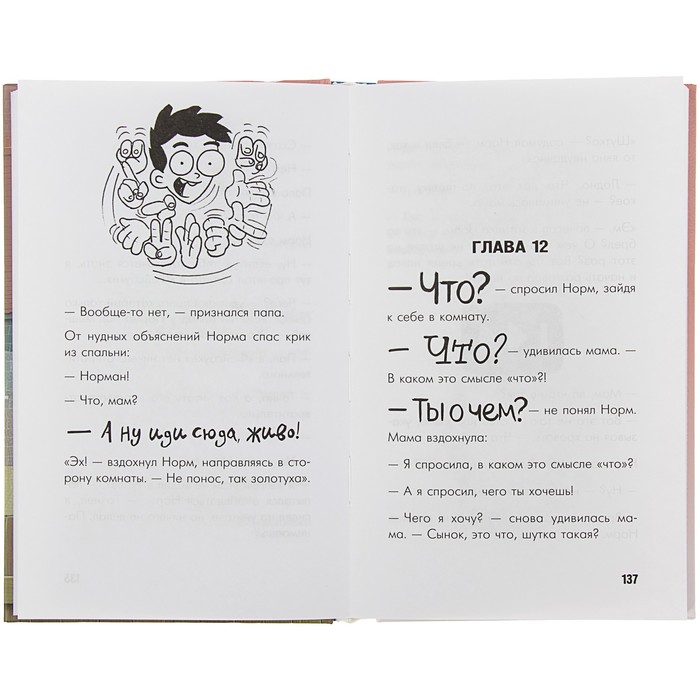 — Вообще-то нет, — признался папа.
От нудных объяснений Норма спас крик
из спальни:
— Норман!
— Что, мам?
— А ну иди сюда, живо!
«Эх! — вздохнул Норм, направляясь в сто-
рону комнаты. — Не понос, так золотуха».
ГЛАВА 12
— Что? — спросил Норм, зайдя
к себе в комнату.
— Что? — удивилась мама. —
В каком это смысле «что»?!
— Ты о чем? — не понял Норм.
Мама вздохнула:
— Я спросила, в каком это смысле «что»?
— А я спросил, чего ты хочешь!
— Чего я хочу? — снова удивилась ма-
ма. — Сынок, это что, шутка такая?
137